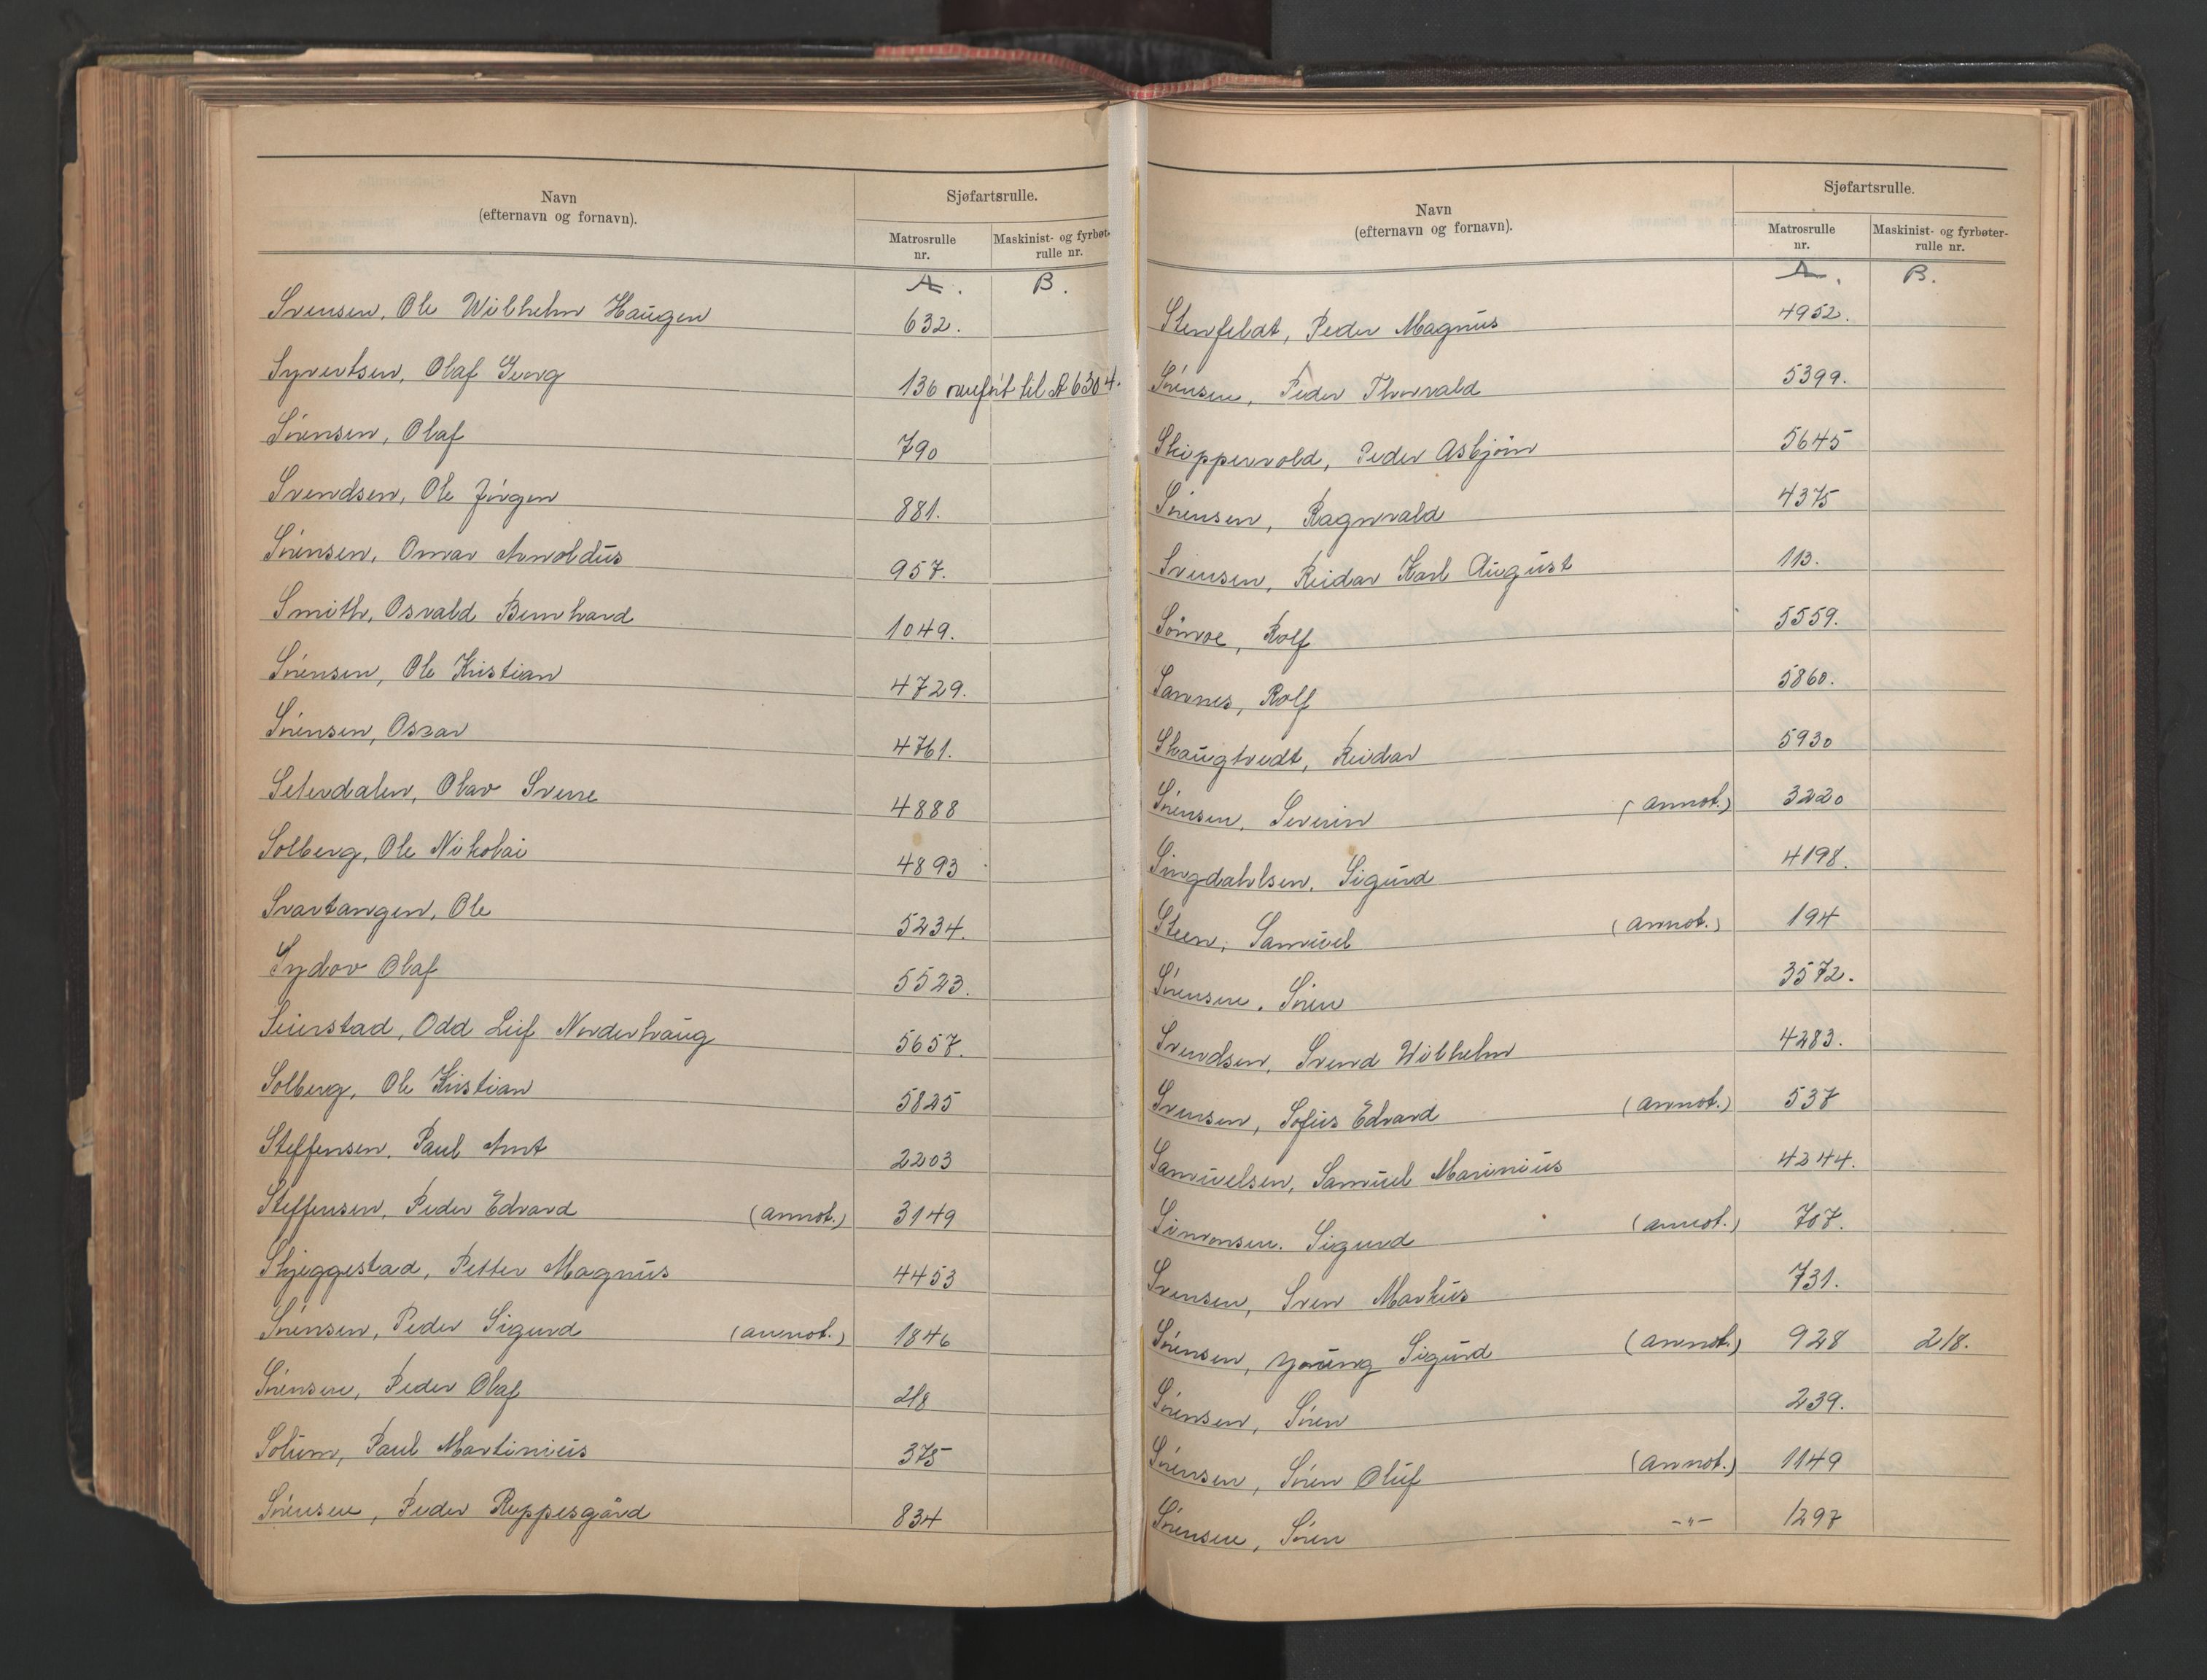 Navn
(efternavn og fornavn).
Sjøfartsrulle.
Matrosrulle nr.
Maskinist- og fyrbøt-
rulle nr.
A. B.
Svensen, Ole Wilhelm Haugen 632.
Syvertsen, Olaf Georg 136 overført til A 6304.
Sørensen, Olaf 790
Svendsen, Ole Jörgen 881.
Sørensen, Omar Arnoldus 957.
Smith, Osvald Bernhard 1049.
Sørensen, Ole Kristian 4729.
Sørensen, Oscar 4761.
Seterdalen, Olav Sverre 4888
Solberg, Ole Nikolai 4893
Svartangen, Ole 5234.
Sydov Olaf 5523.
Seierstad, Odd Leif Norderhaug 5657.
Solberg, Ole Kristian 5825
Steffensen, Paul Arnt 2203
Steffensen, Peder Edvard (annot.) 3149
Skjeggestad, Petter Magnus 4453
Sørensen, Peder Sigurd (annot.) 1846
Sørensen, Peder Olaf 218
Solum, Paul Martinius 375
Sørensen, Peder Reppesgård 834
Navn
(efternavn og fornavn).
Sjøfartsrulle.
Matrosrulle nr.
Maskinist- og fyrbøter-
rulle nr.
A. B.
Stenfeldt, Peder Magnus 4952.
Sørensen, Peder Thorvald 5399.
Skippervold, Peder Asbjörn 5645
Sørensen, Ragnvald 4375
Svensen, Reidar Karl August 113.
Rolf 5559.
Sannes, Rolf 5860.
Skaugtvedt, Reidar 5930
Sørensen, Severin (annot.) 3220
Singdahlsen, Sigurd 4198.
Steen, Samuel (annot.) 194
Sørensen, Sören 3572.
Svendsen, Svend Wilhelm 4283.
Svensen, Sofus Edvard (annot.) 537
Samuelsen, Samuel Marinius 4244.
Simonsen, Sigurd (annot.) 707.
Svensen, Sven Markus 731.
Sørensen, Young Sigurd (annot.) 928 218.
Sørensen, Sören 239.
Sørensen, Sören Oluf (annot.) 1149
Sørensen, Sören -"- 1297